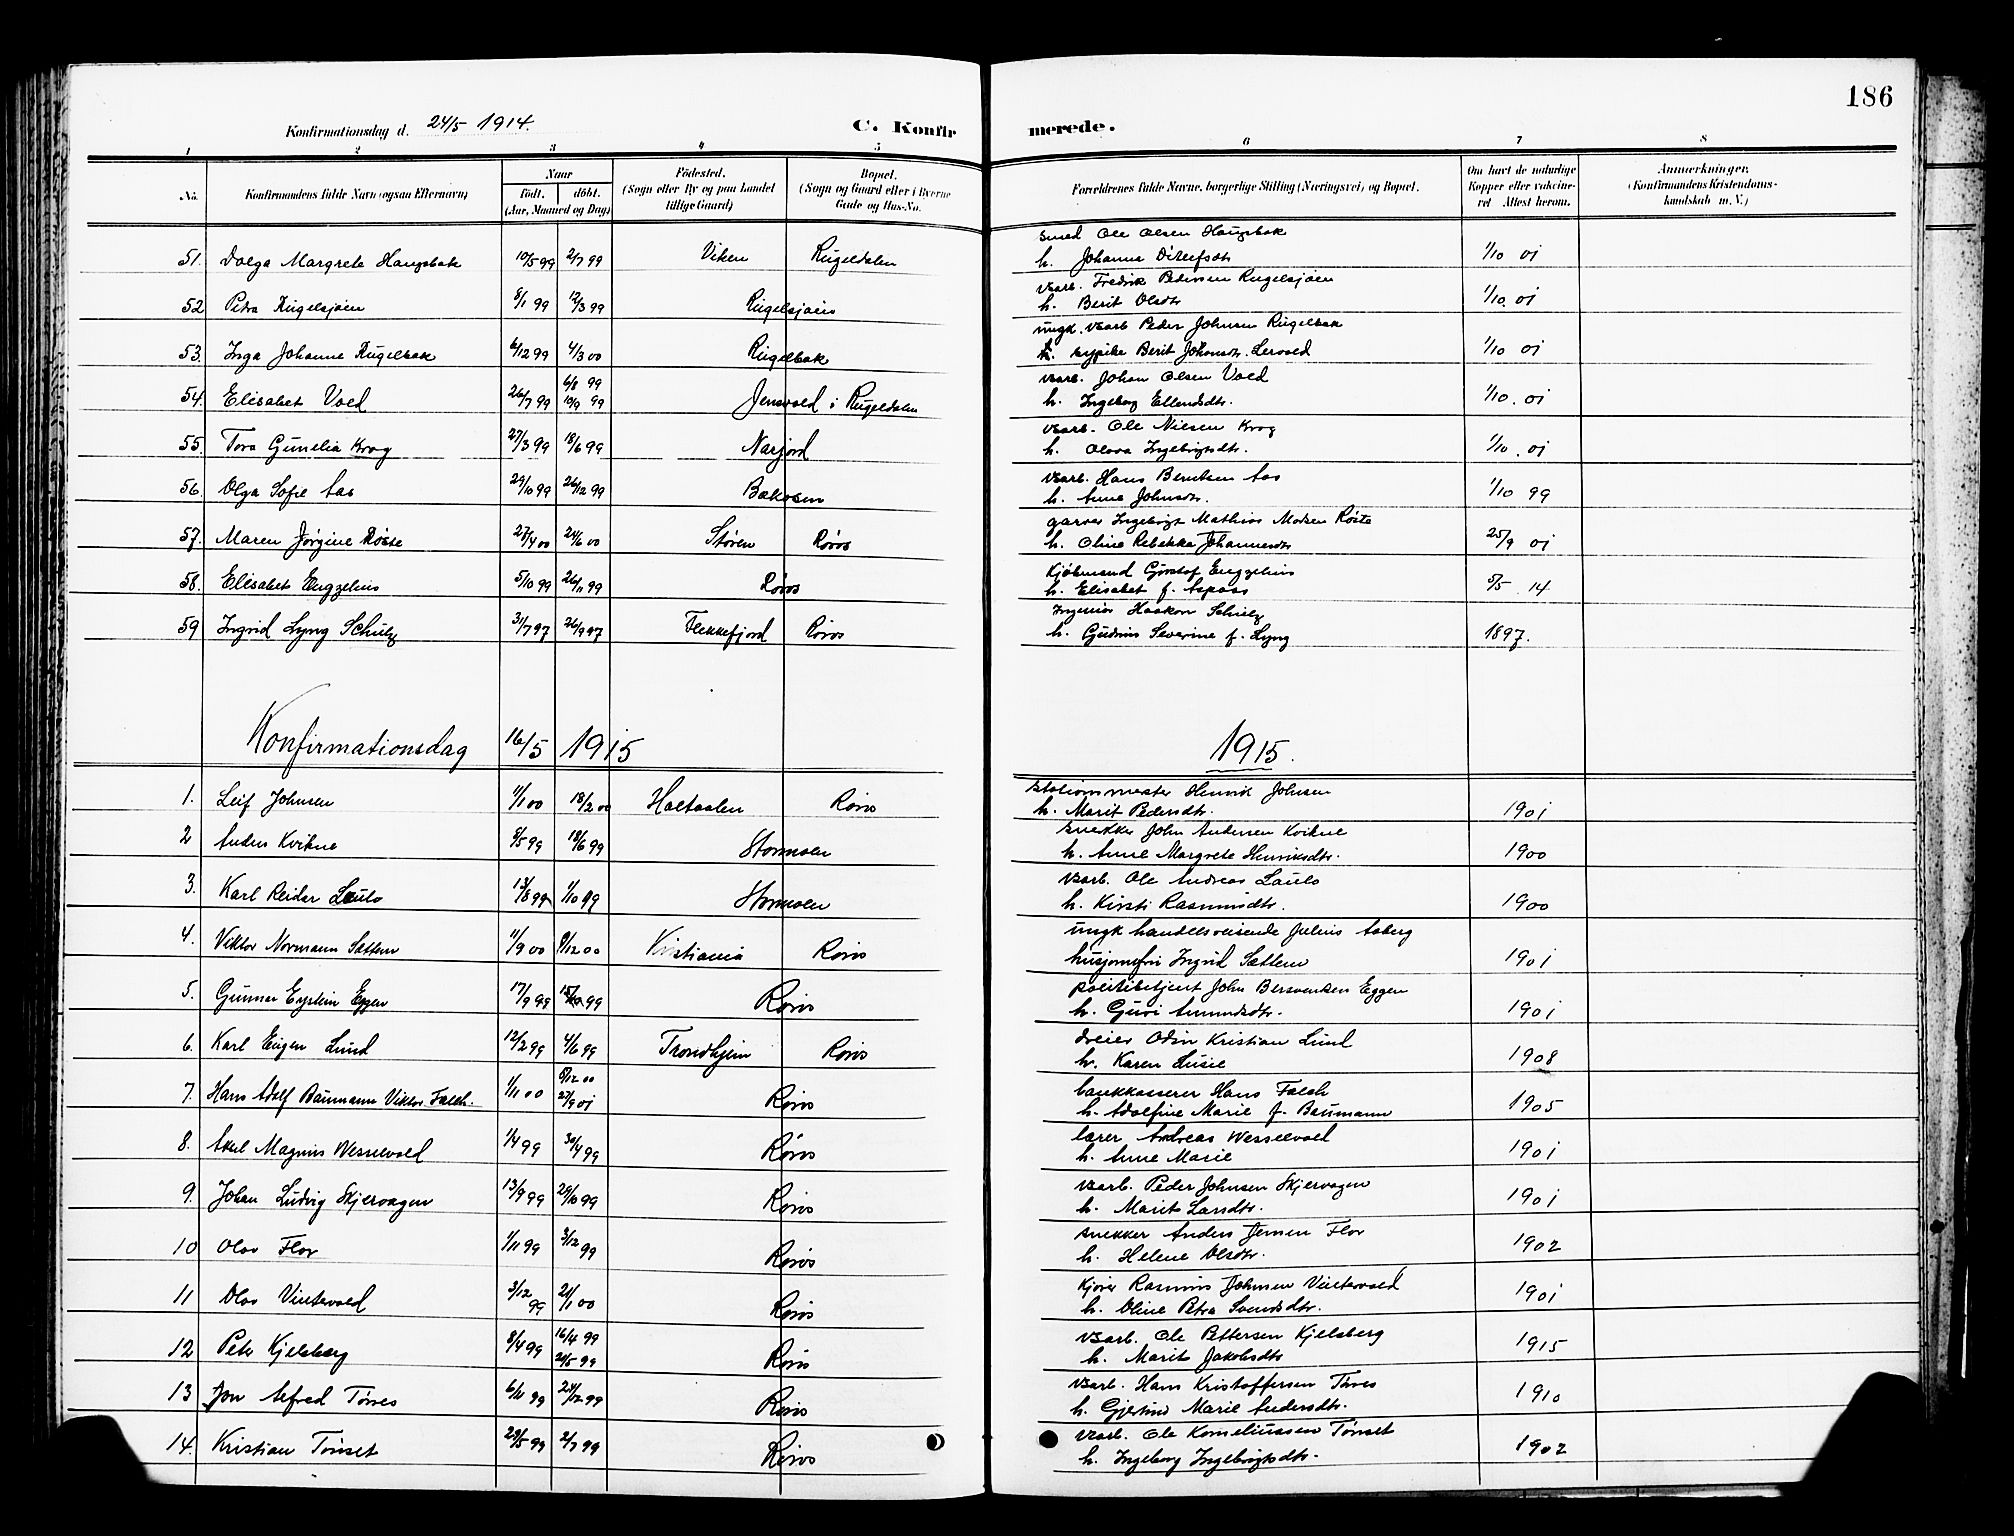 186
Konfirmationsdag d. 24/5 1914. C. Konfirmerede.
1 2 3 4 5 6 7 8
No. Konfirmandens fulde Navn (ogsaa Efternavn) Naar födt. döbt. (Aar, Maaned og Dag) Födested. (Sogn eller By og paa Landet tillige Gaard) Bopæl. (Sogn og Gaard eller i Byerne Gade og Hus-No. Forældrenes fulde Navne, borgerlige Stilling (Næringsvei) og Bopæl. Om havt de naturlige Kopper eller vaccineret Attest herom. Anmærkninger, (Konfirmandens Kristendomskundskab m. V.)
smed Ole Olsen Haugsbak
51. Dolga Margrete Haugsbak 10/5 99 2/7 99 Viken Rugeldalen h. Johanna Ditlefsdtr 1/10 01
vaarb. Fredrik Pedersen Rugelsjøen
52 Petra Rugelsjøen 8/1 99 12/3 99 Rugelsjøen h. Berit Olsdtr 1/10. 01
ungk. vaarb Peder Johnsen Rugelbak
53. Inga Johanne Rugelbak 6/12 99 4/3 00 Rugelbak Berit Johansdtr. Lervold 1/10 01
vaarb. Johan Olsen Vold
54. Elisabet Vold 26/7 99 6/8 99 10/9 99 Jensvold i Rugeldalen h. Ingeborg Ellendsdtr. 1/10. 01
vaarb. Ole Nielsen Krog
55. Tora Gunelia Krog 27/3 99 18/6 99 Narjord h. Olava Ingebrigtsdtr. 1/10. 01
vaarb. Hans Berntsen Aas
56. Olga Sofie Aas 29/10 99 26/12 99 Bakosen h. Anne Johnsdtr. 1/10 99
garver Ingebrigt Mathias Madsen Røste
57. Maren Jørgine Røste 27/4 00 24/6 00 Støren Røros h. Oline Rebekka Johannesdtr 25/9 01
Kjøbmand Gustaf Engzelius
58. Elisabet Engzelius 5/10 99 26/11 99 Røros h. Elisabet f. Aspaas 5/5. 14
Ingeniør Haakon Schulz
59 Ingrid Lyng Schulz 31/7 97 26/9 97 Flekkefjord Røros h. Gudrun Severine f. Lyng 1897.
Konfirmationsdag 16/5 1915 1915.
stationsmester Henrik Johnsen
1. Leif Johnsen 11/1 00 18/2 00 Holtaalen Røros h. Marit Pedersdtr. 1901
snekker John Andersen Kvikne
2 Anders Kvikne 8/5 99 18/6 99 Stormoen h. Anne Margrete Henriksdtr. 1900
vaarb. Ole Andreas Laulo
3. Karl Reidar Laulo 13/8 99 1/10 99 Stormoen h. Kirsti Rasmusdtr. 1900
ungk handelsreisende Julius Aaberg
4. Viktor Normann Sættem 11/9 00 9/12 00 Kristiania Røros husjomfru Ingrid Sættem 1901
politibetjent John Bersvendsen Eggen
5. Gunnar Eystein Eggen 17/9 99 15/10 99 Røros h. Guri Amundsdtr. 1901
dreier Odin Kristian Lund
6. Karl Eugen Lund 12/2 99 4/6 99 Trondhjem Røros h. Karen Lusie 1908
bankkasserer Hans Falch
7. Hans Adolf Baumann Viktor Falch. 1/11 00 8/12 00 27/9 01 Røros h. Adolfine Marie f. Baumann 1905
lærer Andreas Wesselvold
8. Aksel Magnus Wesselvold 1/4 99 30/4 99 Røros h. Anne Marie 1901
vaarb. Peder Johnsen Skjervagen
9. Johan Ludvig Skjervagen 13/9 99 29/10 99 Røros h. Marit Larsdtr. 1901
snekker Anders Jensen Flor
10 Olav Flor 1/11 99 3/12 99 Røros h. Helene Olsdtr. 1902
Kjører Rasmus Johnsen Vintervold
11 Olav Vintervold 3/12 99 21/1 00 Røros h. Oline Petra Svendsdtr. 1901
vaarb. Ole Pettersen Kjelsberg
12 Peter Kjelsberg 8/4 99 16/4 99 20/5 99 Røros h. Marit Jakobsdtr 1915
vaarb. Hans Kristoffersen Tørres
13 Jon Alfred Tørres 6/11 99 24/12 99 Røros h. Gjertrud Marie Andersdtr. 1910
vaarb. Ole Korneliussen Tønset
14. Kristian Tønset 29/5 99 2/7 99 Røros h. Ingeborg Ingebrigtsdtr. 1902